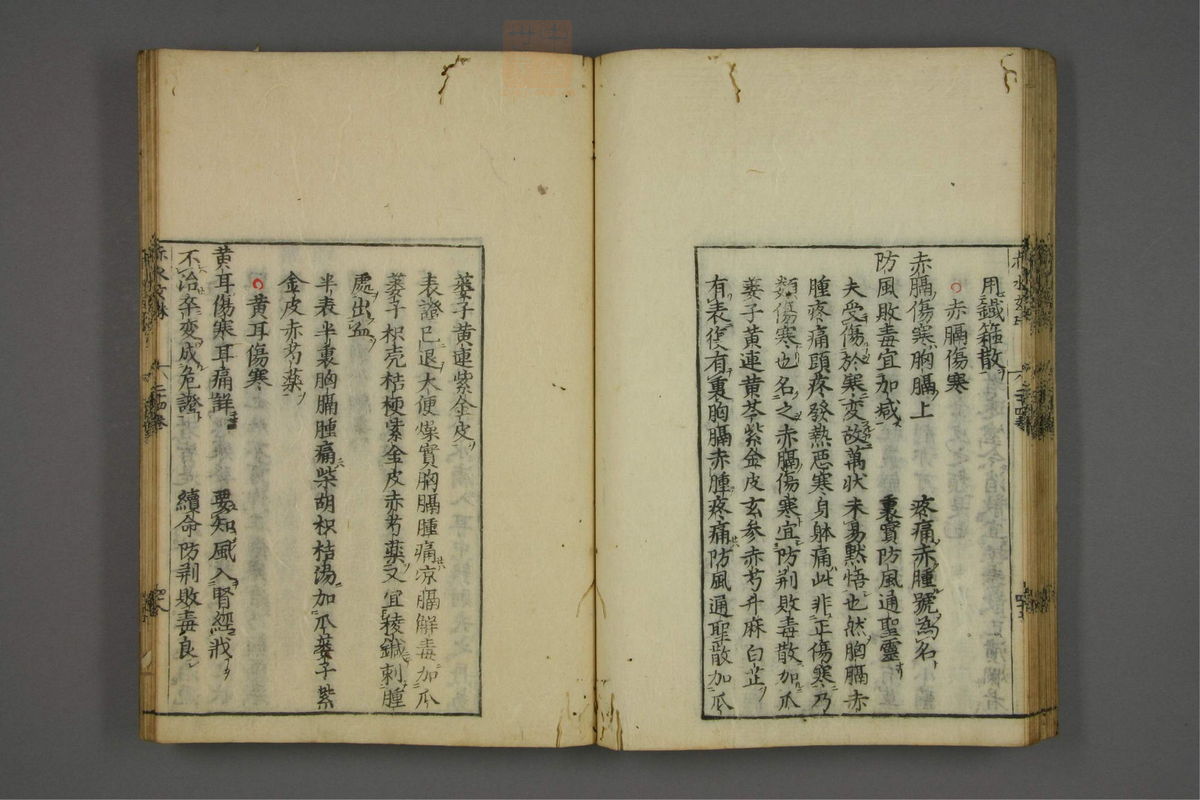 用鐵箍散
赤膈傷寒
赤膈傷寒胸膈上　疼痛赤腫號為名
防風敗毒宜加減　裏實防風通聖靈
夫受傷於寒変故萬状未易黙悟也然胸膈赤
腫疼痛頭疼發熱惡寒身躰痛此非正傷寒乃
類傷寒也名之赤膈傷寒宜防荆敗毒散加瓜
蔞子黄連黄芩紫金皮玄参赤芍升麻白芷
有表復有裏胸膈赤腫疼痛防風通聖散加瓜
蔞子黄連紫金皮
表證已退大便燥實胸膈腫痛凉膈解毒加瓜
蔞子枳壳桔梗紫金皮赤芍藥又宜稜鍼刺腫
處出血
半表半裏胸膈腫痛柴胡枳桔湯加瓜蔞子紫
金皮赤芍藥
黄耳傷寒
黄耳傷寒耳痛詳　要知風入腎經戕
不治卒変成危證　續命防荆敗毒良